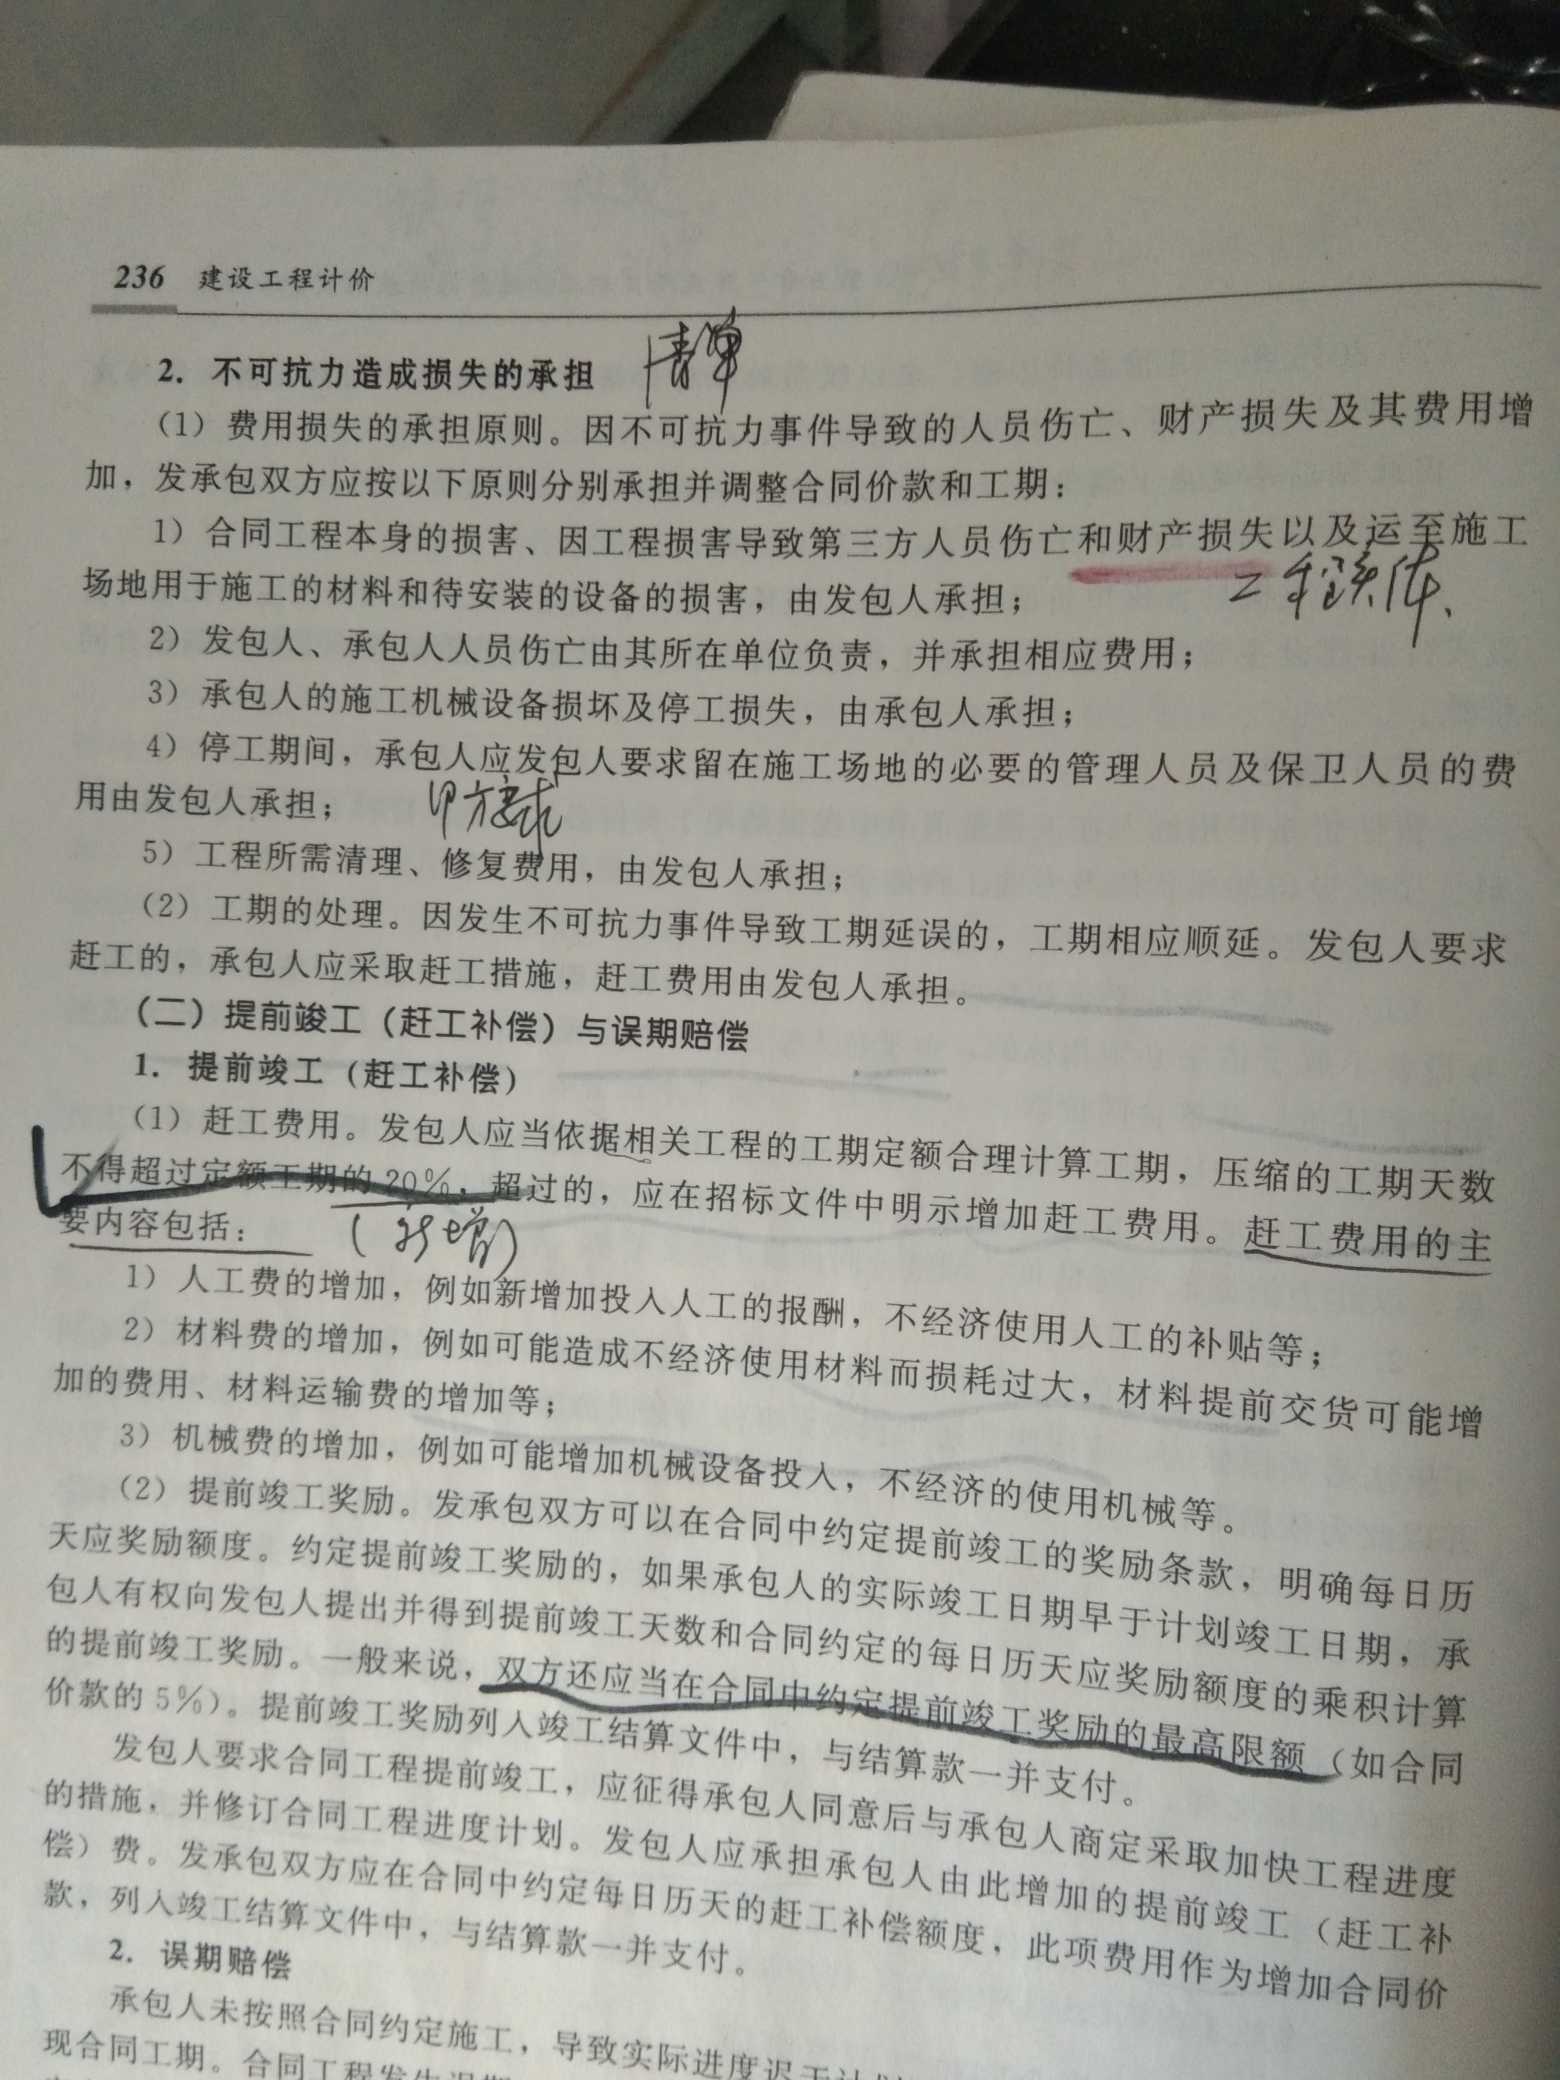 236 建设工程计价
2. 不可抗力造成损失的承担 清单
(1) 费用损失的承担原则。因不可抗力事件导致的人员伤亡、财产损失及其费用增
加，发承包双方应按以下原则分别承担并调整合同价款和工期：
1) 合同工程本身的损害、因工程损害导致第三方人员伤亡和财产损失以及运至施工
场地用于施工的材料和待安装的设备的损害，由发包人承担； 工程实体、
2) 发包人、承包人人员伤亡由其所在单位负责，并承担相应费用；
3) 承包人的施工机械设备损坏及停工损失，由承包人承担；
4) 停工期间，承包人应发包人要求留在施工场地的必要的管理人员及保卫人员的费
用由发包人承担； 甲方要求
5) 工程所需清理、修复费用，由发包人承担；
(2) 工期的处理。因发生不可抗力事件导致工期延误的，工期相应顺延。发包人要求
赶工的，承包人应采取赶工措施，赶工费用由发包人承担。
(二) 提前竣工 (赶工补偿) 与误期赔偿
1. 提前竣工 (赶工补偿)
(1) 赶工费用。发包人应当依据相关工程的工期定额合理计算工期，压缩的工期天数
不得超过定额工期的 20%，超过的，应在招标文件中明示增加赶工费用。赶工费用的主
要内容包括： (新增)
1) 人工费的增加，例如新增加投入人工的报酬，不经济使用人工的补贴等；
2) 材料费的增加，例如可能造成不经济使用材料而损耗过大，材料提前交货可能增
加的费用、材料运输费的增加等；
3) 机械费的增加，例如可能增加机械设备投入，不经济的使用机械等。
(2) 提前竣工奖励。发承包双方可以在合同中约定提前竣工的奖励条款，明确每日历
天应奖励额度。约定提前竣工奖励的，如果承包人的实际竣工日期早于计划竣工日期，承
包人有权向发包人提出并得到提前竣工天数和合同约定的每日历天应奖励额度的乘积计算
的提前竣工奖励。一般来说，双方还应当在合同中约定提前竣工奖励的最高限额 (如合同
价款的 5%)。提前竣工奖励列入竣工结算文件中，与结算款一并支付。
发包人要求合同工程提前竣工，应征得承包人同意后与承包人商定采取加快工程进度
的措施，并修订合同工程进度计划。发包人应承担承包人由此增加的提前竣工 (赶工补
偿) 费。发承包双方应在合同中约定每日历天的赶工补偿额度，此项费用作为增加合同价
款，列入竣工结算文件中，与结算款一并支付。
2. 误期赔偿
承包人未按照合同约定施工，导致实际进度迟于计
现合同工期。合同工程发生误期